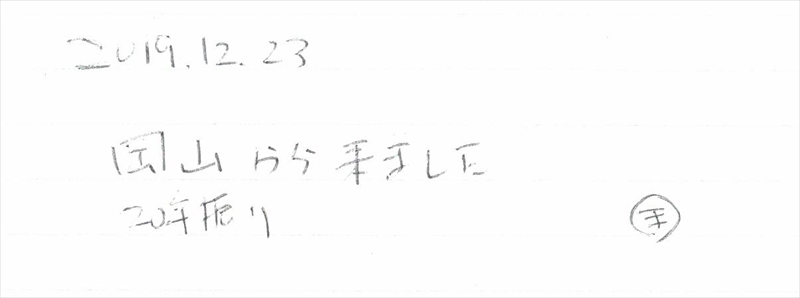 2019.12.23
岡山から来ました
20年振り